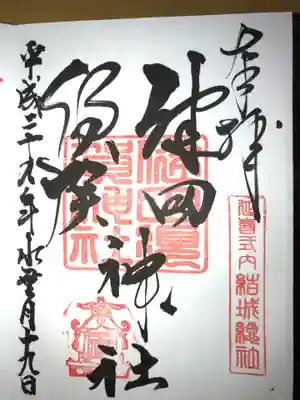 奉拝
延喜式内結城總社
健田
須賀
神社
健田須
賀神社
平成二十九年水無月十九日